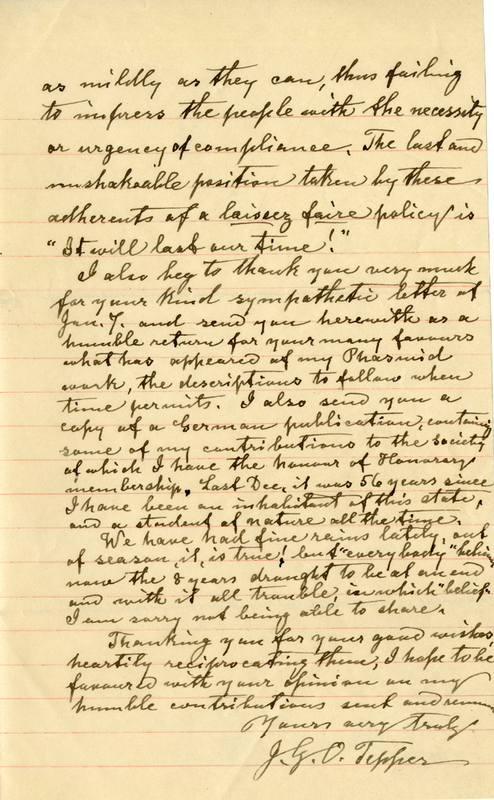 as mildly as they can, thus failing
to impress the people with the necessity
or urgency of compliance. The last and
unshakeable position taken by these
adherents of a laissez faire policy is
"It will last our time!"
I also beg to thank you very much
for your kind sympathetic letter of
Jan. 7. and send you herewith as a
humble return for your many favours
what has appeared of my Phasmid
work, the descriptions to follow when
time permits. I also send you a
copy of a German publication, containing
some of my contributions to the society
of which I have the honour of Honorary
membership. Last Dec. it was 56 years since
I have been an inhabitant of this state,
and a student of nature all the time.
We have had fine rains lately, out
of season, it is true! but "everybody"
now the 8 years drought to be at an end
and with it all trouble, in which "belief"
I am sorry not being able to share.
Thanking you for your good wishes
heartily reciprocating them, I hope to be
favoured with your opinion on my
humble contributions sent and
Yours very truly
J. G. O. Tepper